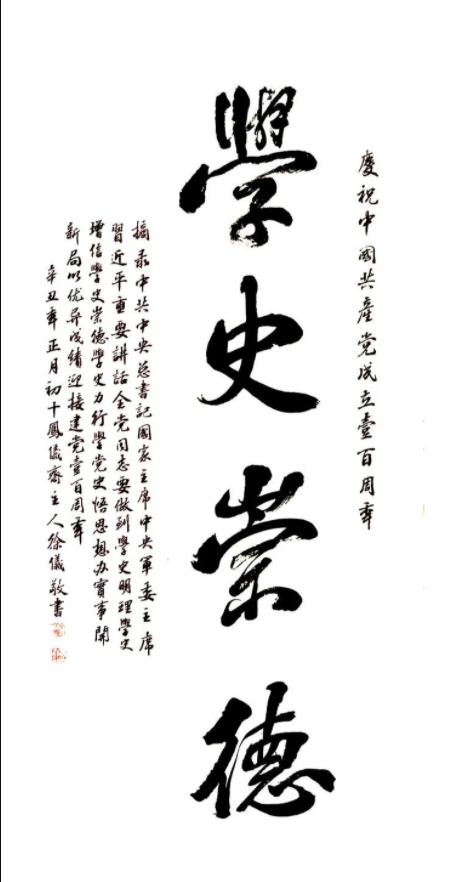 慶祝中國共產党成立壹百周年
學史崇德
摘录中共中央总書記國家主席中央軍委主席
習近平重要講話全党同志要做到學史明理學史
增信學史崇德學史力行學党史悟思想办實事開
新局以优异成績迎接建党壹百周年
辛丑年正月初十鳳儀齋主人徐儀敬書